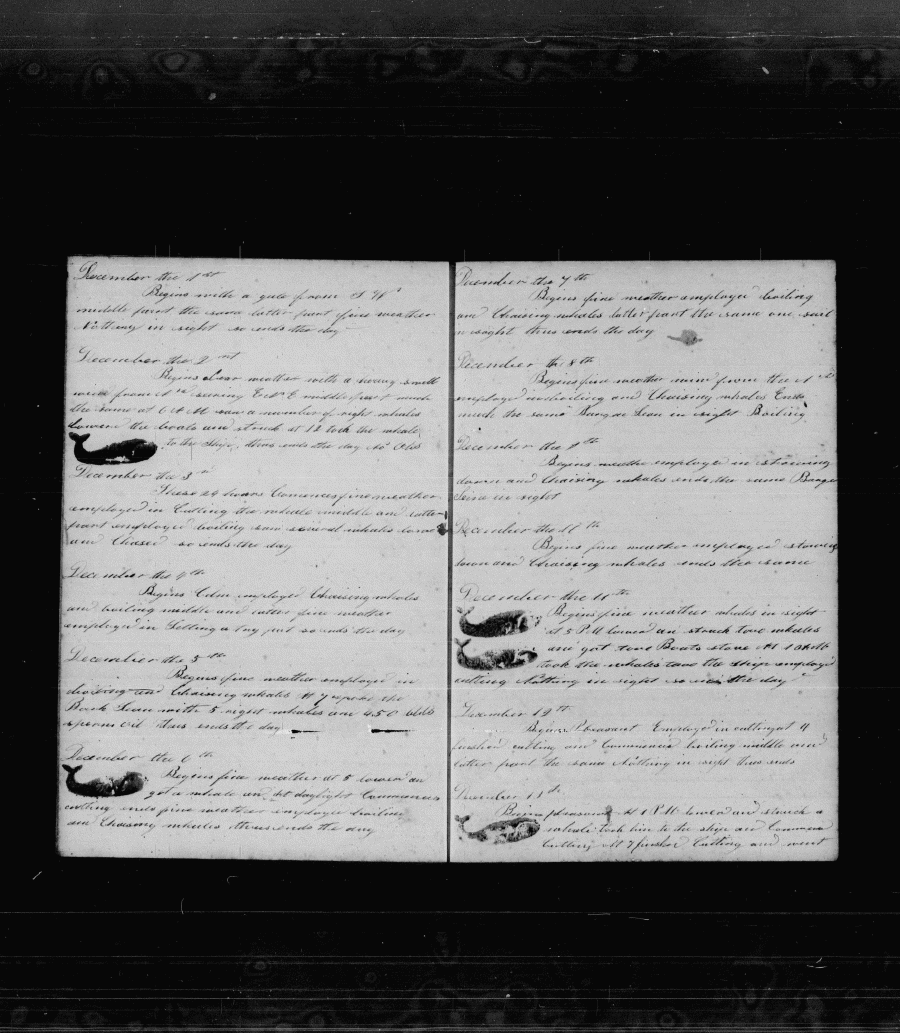 December the 1st
Begins with a gale from S W
middle part the same latter part fine weather
Nothing in sight so ends the day
December the 2nd
Begins clear weather with a heavy swell
wind from middle part much
the same at 6 A M saw a number of right whales
lowered the boats and struck at 12 took the whale
to the ship thus ends the day No Obs
December the 3rd
These 24 hours Commences fine weather
employed in Cutting the whale middle and latter
part employed boiling saw several whales
and Chased so ends the day
December the 4th
Begins Calm employed Chaising whales
and boiling middle and latter fine weather
employed in Setting a try pot so ends the day
December the 5th
Begins fine weather employed in
and Chaising whales At 7 spoke the
Bark with 5 right whales and 450 bbls
sperm oil thus ends the day
December the 6th
Begins fine weather at 5 lowerd an
got a whale an at daylight Commences
cutting ends fine weather employed boiling
and Chaising whales thus ends the day
December the 7th
Begins fine weather employed boiling
and Chaising whales latter part the same one sail
in sight thus ends the day
December th 8th
Begins fine weather wind from the
employed in boiling and Chaising whales Ends
much the same in sight Boiling
December the 9th
Begins weather employed in stowing
down and Chaising whales ends the same
in sight
December the 10th
Begins fine weather employed stowing
down and Chaising whales ends the same
December the 11th
Begins fine weather whales in sight
at 5 P M lowerd an struck two whales
and got two Boats stove At
took the whales two the ship employed
cutting Nothing in sight so ends the day
December 12th
Begins Pleasant Employed in cutting at 4
finished cutting and Commences boiling middle and
latter part the same Nothing in sight thus ends
December 13th
Begins pleasant At 1 P M lowerd and struck a
whale took him to the ship and Commence
Cutting At 7 finished Cutting and went